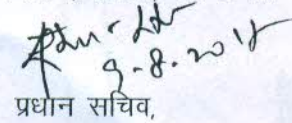 9.8.2018
प्रधान सचिव,